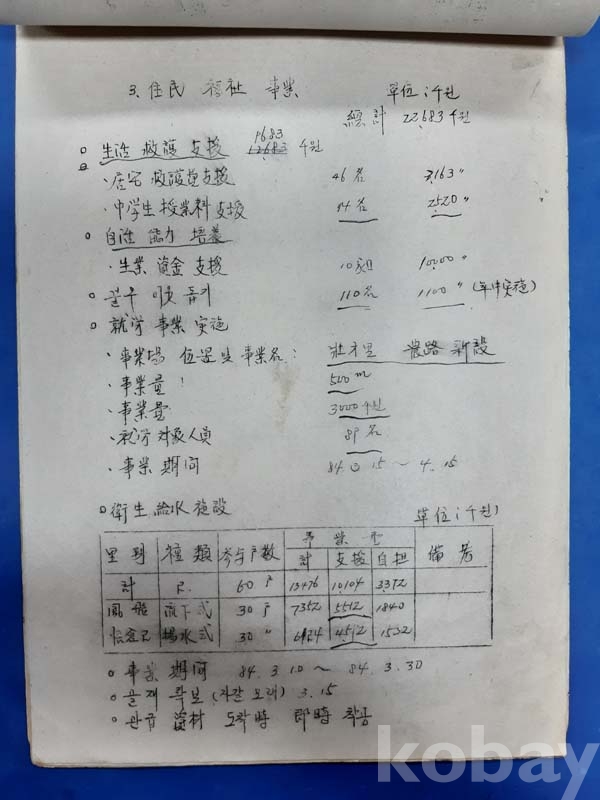 3. 住民 福祉 事業 單位:千원
總計 22,683 千원
1683
○ 生活 救護 支援 12,683 千원
· 居宅 救護 支援 46名 3,163 〃
· 中学生 授業料 支援 14名 2520 〃
○ 自活 能力 培養
· 生業 資金 支援 10 10,000 〃
○ 불우 이웃 돕기 110名 1100 〃 (年中実施)
○ 就労 事業 実施
· 事業場 位置 및 事業名: 農路 新設
· 事業量: 500m
· 事業費 3000千원
· 就労 対象人員 89名
· 事業 期间 84. 3. 15 ~ 4. 15
○ 衛生 給水 施設 單位:千원)
事業費
里別 種類 参与戶数 計 支援 自担 備考
計 60戶 13476 10,104 3,372
流下式 30戶 7352 5512 1840
揚水式 30 〃 6124 4592 1532
○ 事業 期间 84. 3. 10 ~ 84. 3. 30
○ 골재 확보 (자갈 모래) 3. 15
○ 관급 資材 도착時 即時 착공
kobay